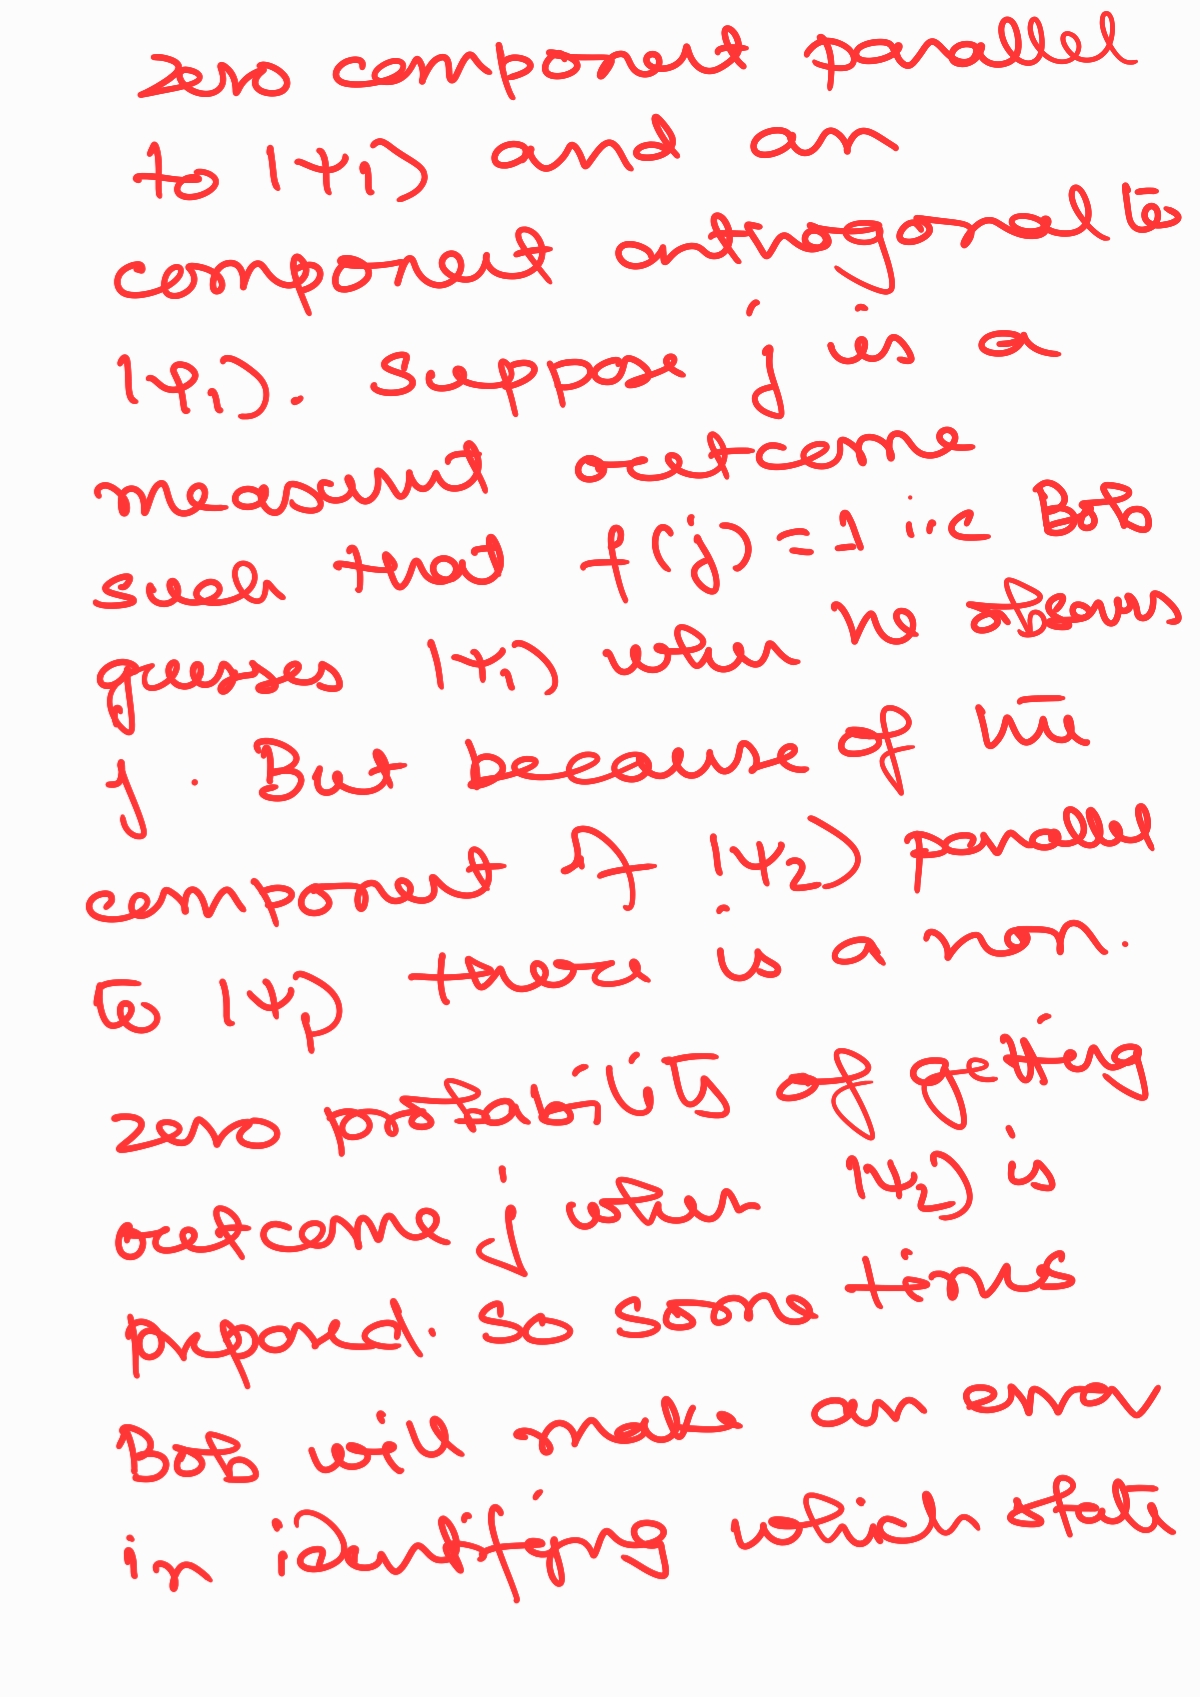 zero component parallel
to |ψ₁⟩ and an
component orthogonal to
|ψ₁⟩. Suppose j is a
measumt outcome
such that f(j) = 1 i.e Bob
guesses |ψ₁⟩ when he observs
j. But because of the
component of |ψ₂⟩ parallel
to |ψ₁⟩ there is a non.
zero probability of getting
outcome j when |ψ₂⟩ is
prepared. So some times
Bob will make an error
in identifying which state